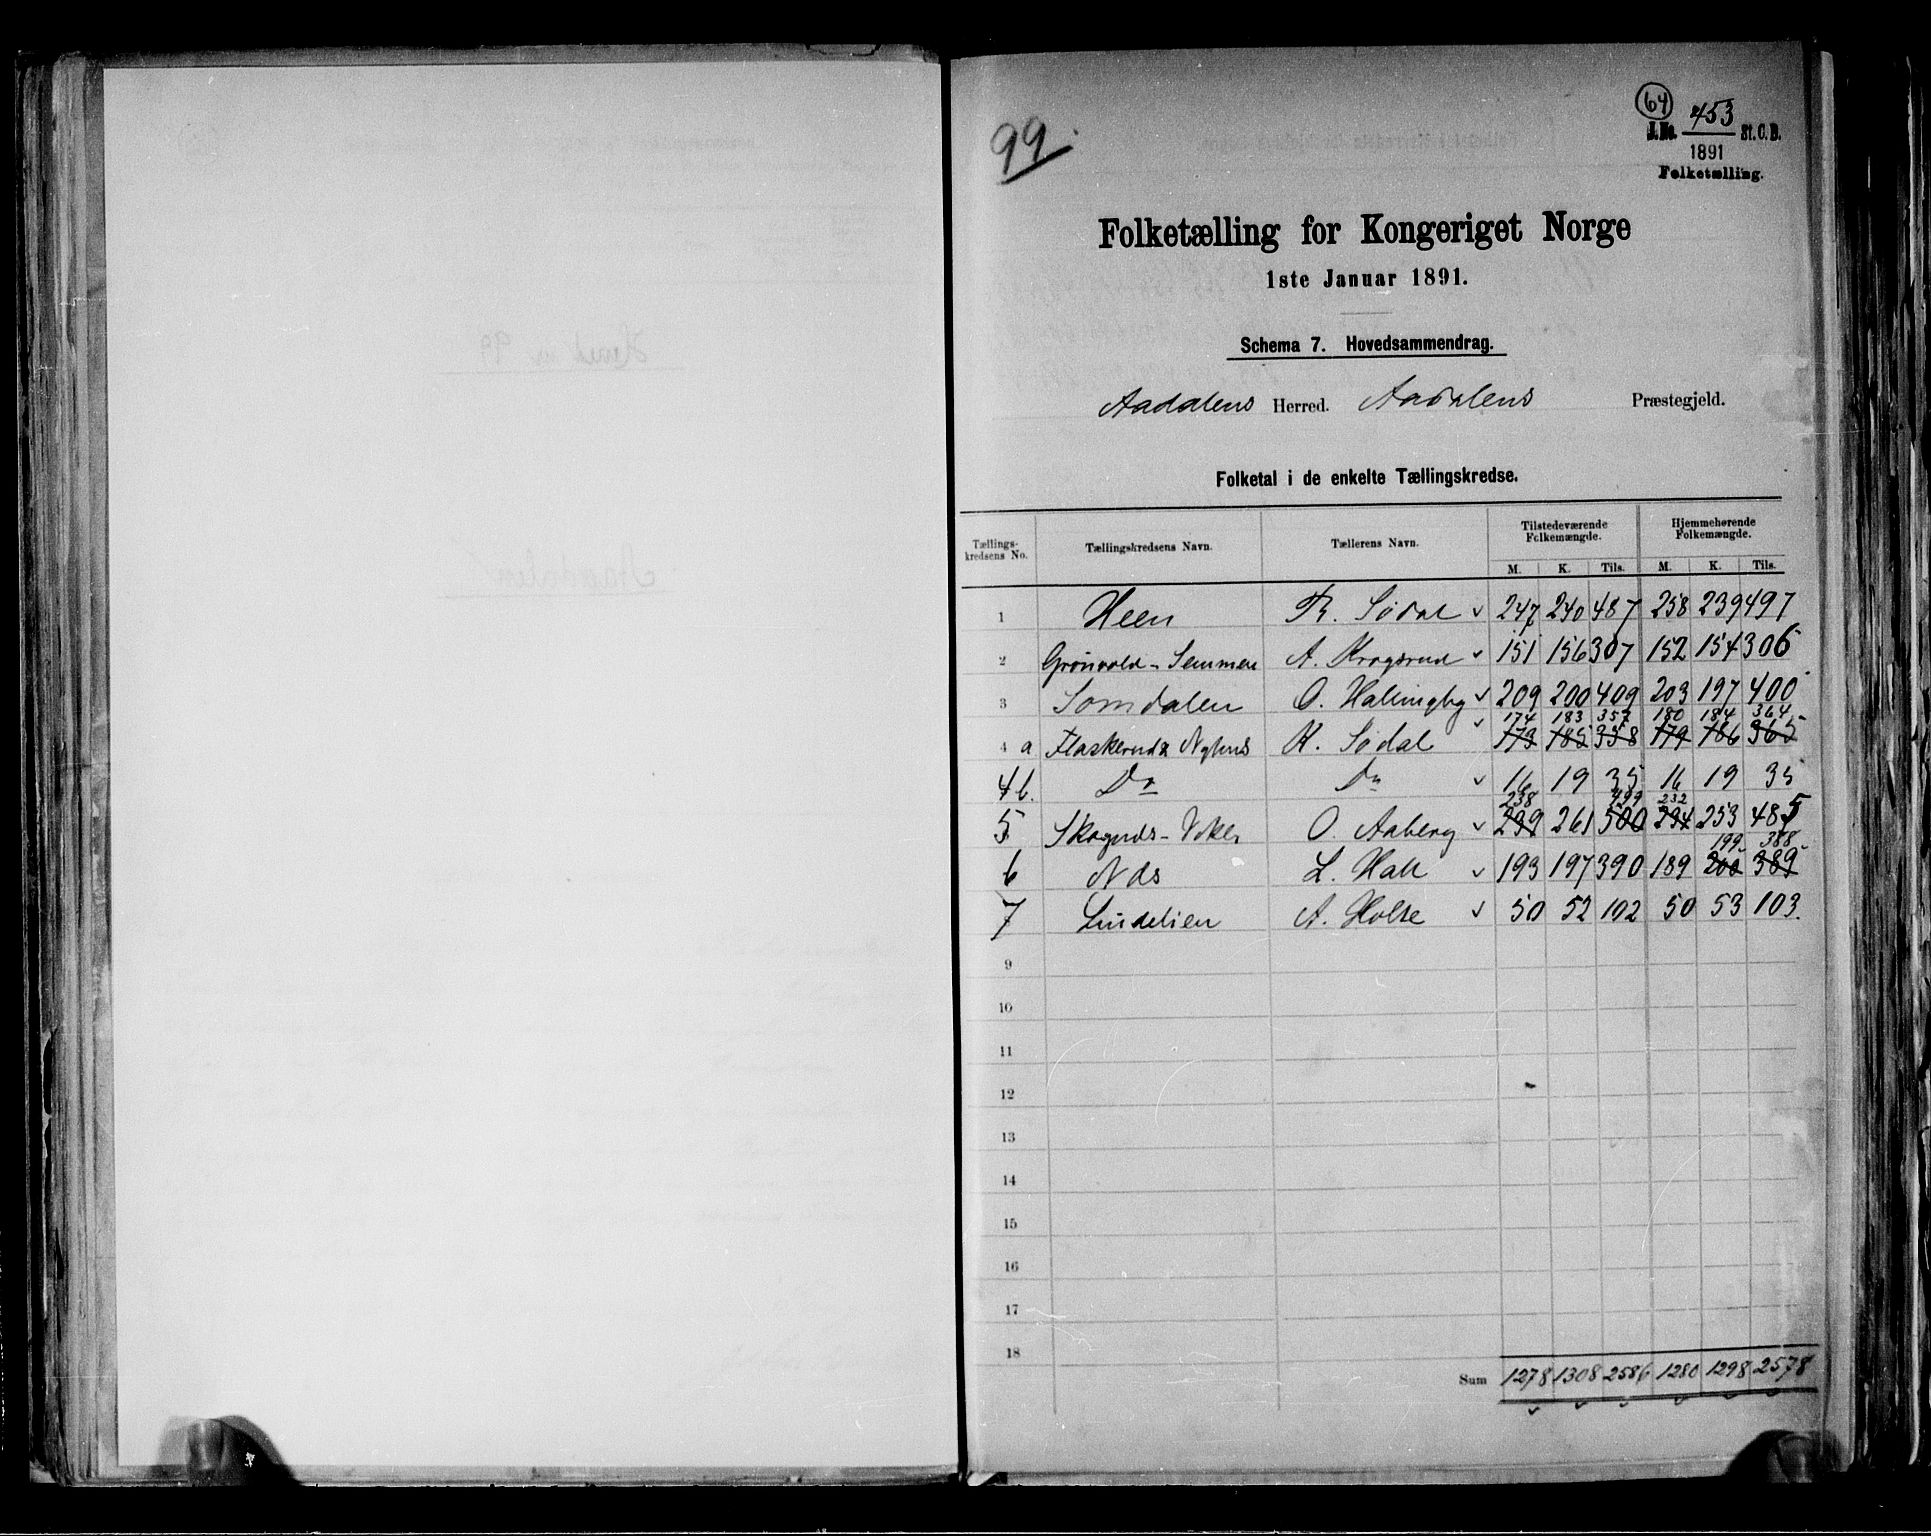 99.
64
J.No. 453 St. C. B.
1891
Folketælling.
Folketælling for Kongeriget Norge
1ste Januar 1891.
Schema 7. Hovedsammendrag.
Aadalens Herred. Aadalens Præstegjeld.
Folketal i de enkelte Tællingskredse.
Tællings-kredsens No. Tællingskredsens Navn. Tællerens Navn. Tilstedeværende Folkemængde. Hjemmehørende Folkemængde.
M. K. Tils. M. K. Tils.
1 Heen Th. Sødal 247 240 487 258 239 497
2 Grønvold-Semmen A. Kragsrud 151 156 307 152 154 306
3 Somdalen O. Hallingby 209 200 409 203 197 400
174 183 357 180 184 364
4 a Flaskerud & Nyhus K. Sødal 173 185 358 179 186 365
4 b. Do Do 16 19 35 16 19 35
238 499 232
5 Skagnds-Viker O. Aaberg 239 261 500 234 253 485
199 388
6 Nds L. Hall 193 197 390 189 200 389
7 Lindelien A. Holte 50 52 102 50 53 103.
9
10
11
12
13
14
15
16
17
18
Sum 1278 1308 2586 1280 1298 2578